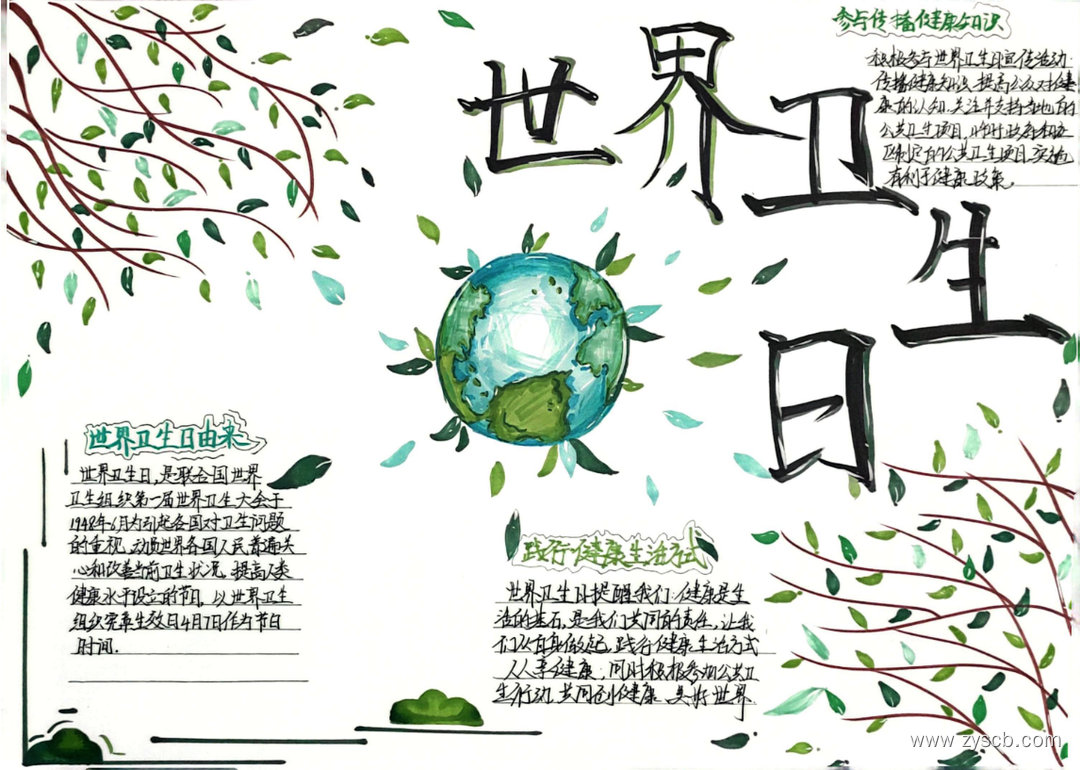 世界卫生日
参与传播健康知识
积极参与世界卫生日宣传活动
传播健康知识,提高公众对健
康的认知.关注并支持当地的
公共卫生项目,
制定的公共卫生项目.实施
有利于健康政策.
世界卫生日由来
世界卫生日,是联合国世界
卫生组织第一届世界卫生大会于
1948年6月为引起各国对卫生问题
的重视,动员世界各国人民普遍关
心和改善当前卫生状况,提高人类
健康水平设立的节日,以世界卫生
组织宪章生效日4月7日作为节日
时间.
践行健康生活方式
世界卫生日提醒我们:健康是生
活的基石,是我们共同的责任,让我
们从自身做起,践行健康生活方式
人人享健康,同时积极参加公共卫
生行动,共同创健康、美好世界
www.zyscb.com